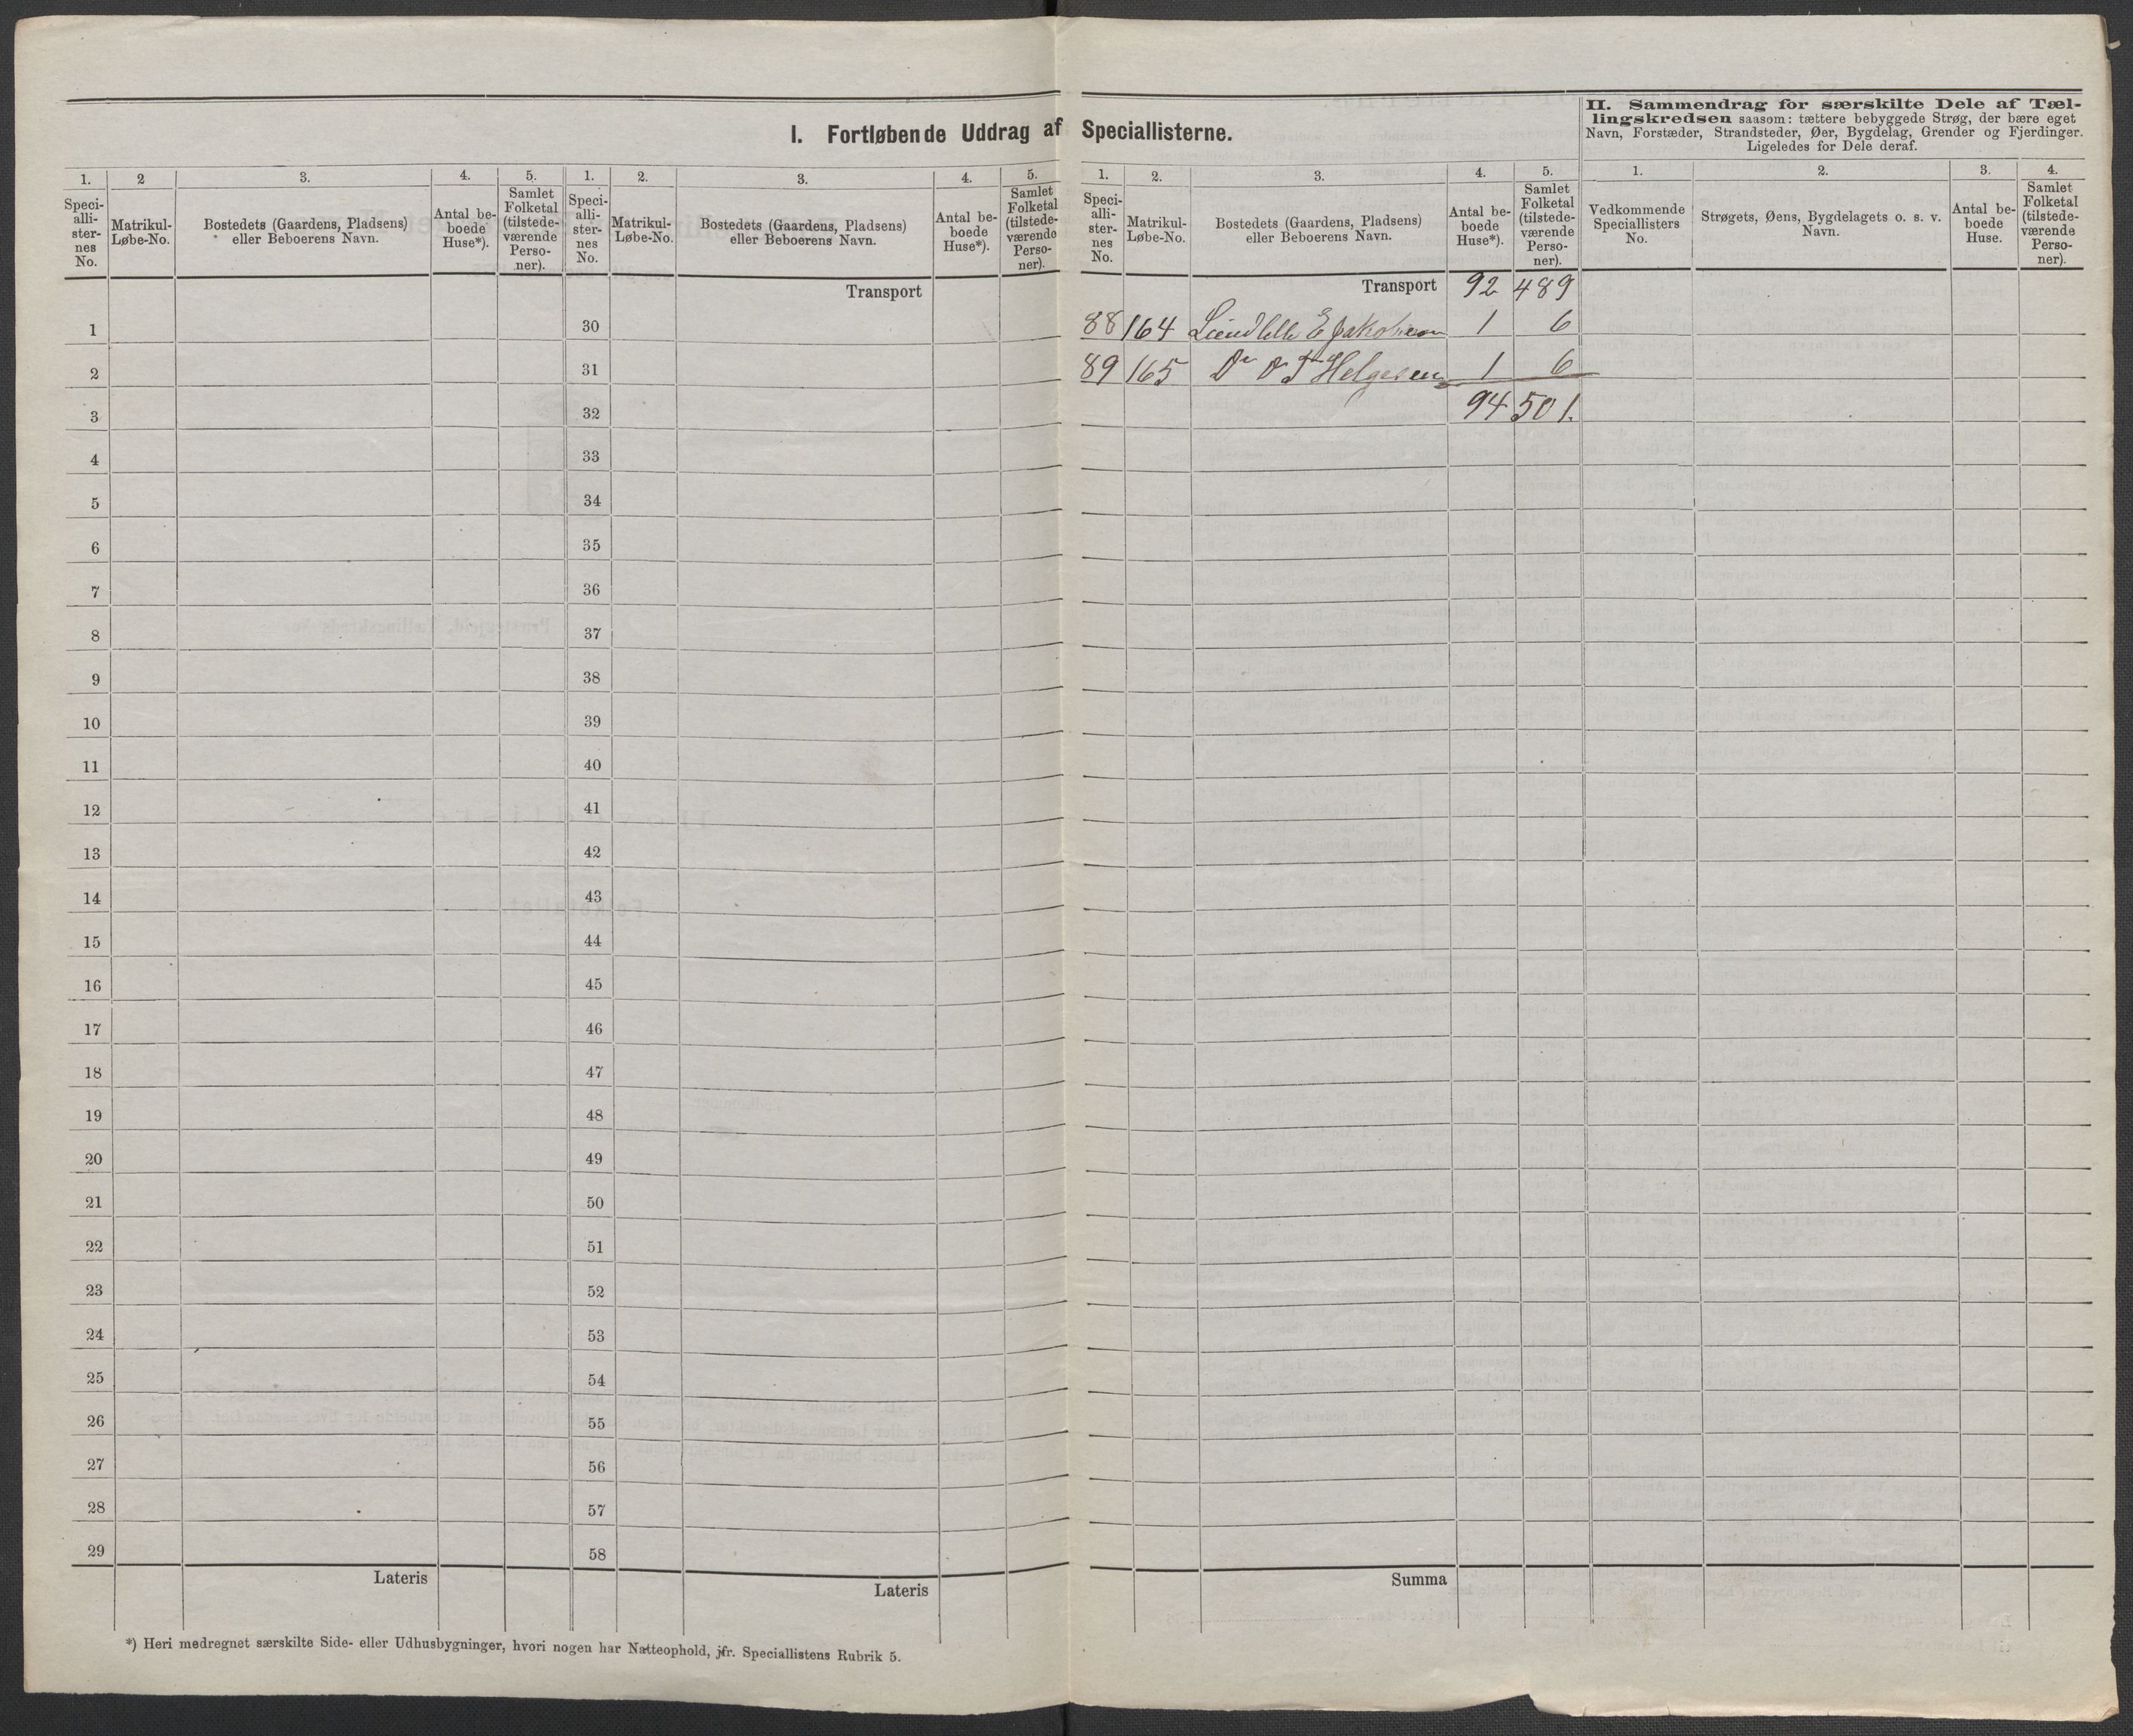 I. Fortløbende Uddrag af Speciallisterne.
II. Sammendrag for særskilte Dele af Tæl-
lingskredsen saasom: tættere bebyggede Strøg, der bære eget
Navn, Forstæder, Strandsteder, Øer, Bygdelag, Grender og Fjerdinger.
Ligeledes for Dele deraf.
1. 2 3. 4. 5. 1. 2. 3. 4. 5.
Speci-
alli-
ster-
nes
No.
Matrikul-
Løbe-No.
Bostedets (Gaardens, Pladsens)
eller Beboerens Navn.
Antal be-
boede
Huse*).
Samlet
Folketal
(tilstede-
værende
Perso-
ner).
Speci-
alli-
ster-
nes
No.
Matrikul-
Løbe-No.
Bostedets (Gaardens, Pladsens)
eller Beboerens Navn.
Antal be-
boede
Huse*).
Samlet
Folketal
(tilstede-
værende
Perso-
ner).
Transport
1 30
2 31
3 32
4 33
5 34
6 35
7 36
8 37
9 38
10 39
11 40
12 41
13 42
14 43
15 44
16 45
17 46
18 47
19 48
20 49
21 50
22 51
23 52
24 53
25 54
26 55
27 56
28 57
29 58
Lateris Lateris
*) Heri medregnet særskilte Side- eller Udhusbygninger, hvori nogen har Natteophold, jfr. Speciallistens Rubrik 5.
1. 2. 3. 4. 5. 1. 2. 3. 4.
Speci-
alli-
ster-
nes
No.
Matrikul-
Løbe-No.
Bostedets (Gaardens, Pladsens)
eller Beboerens Navn.
Antal be-
boede
Huse*).
Samlet
Folketal
(tilstede-
værende
Perso-
ner).
Vedkommende
Speciallisters
No.
Strøgets, Øens, Bygdelagets o. s. v.
Navn.
Antal be-
boede
Huse.
Samlet
Folketal
(tilstede-
værende
Perso-
ner).
Transport 92 489
88 164 Lundlille E Jakobsen 1 6
89 165 Do Helgesen 1 6
94 501.
Summa